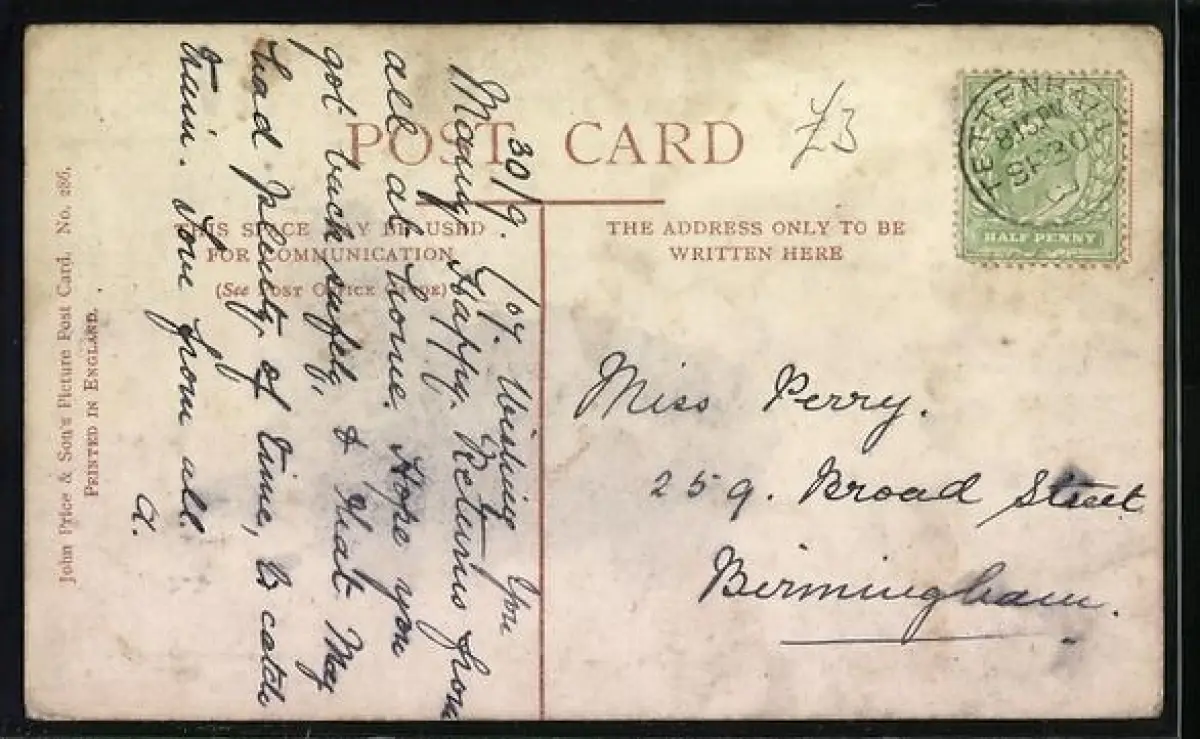 POST CARD
£3
THIS SPACE MAY BE USED
FOR COMMUNICATION
(See POST OFFICE GUIDE)
THE ADDRESS ONLY TO BE
WRITTEN HERE
TETTENHALL
8.15 PM
SP 30
HALF PENNY
30/9/04. Wishing you
Many Happy Returns from
all at home. Hope you
got back safely,
& that May
had plenty of time, to catch
train. Love from all.
A.
Miss Perry.
259. Broad Street
Birmingham.
John Price & Son's Picture Post Card, No. 286.
PRINTED IN ENGLAND.